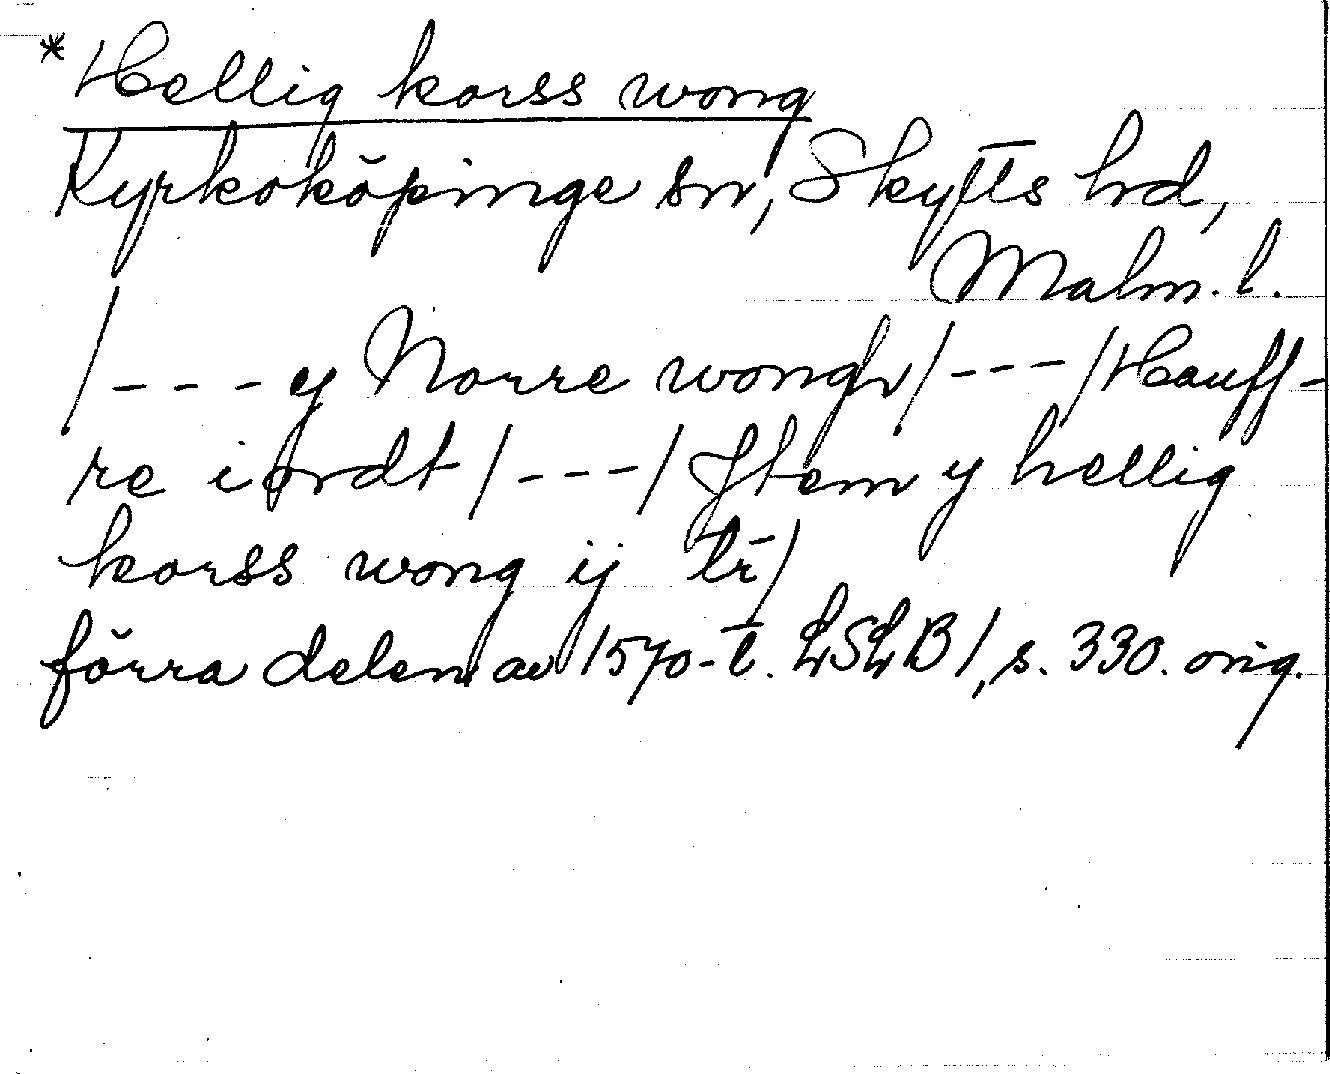 *Hellig korss wong
Kyrkoköpinge sn, Skytts hd,
Malm. l.
/---y Norre wongh/---/Hauff-
re iordt/---/Jtem y hellig
korss wong ij
förra delen av 1570-t. LSLB 1, s. 330. orig.